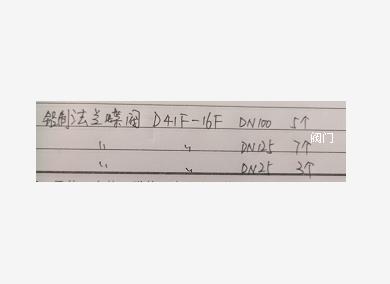 铝制法兰蝶阀 D41F-16F DN100 5个
〃 〃 DN125 7个
阀门
〃 〃 DN25 3个